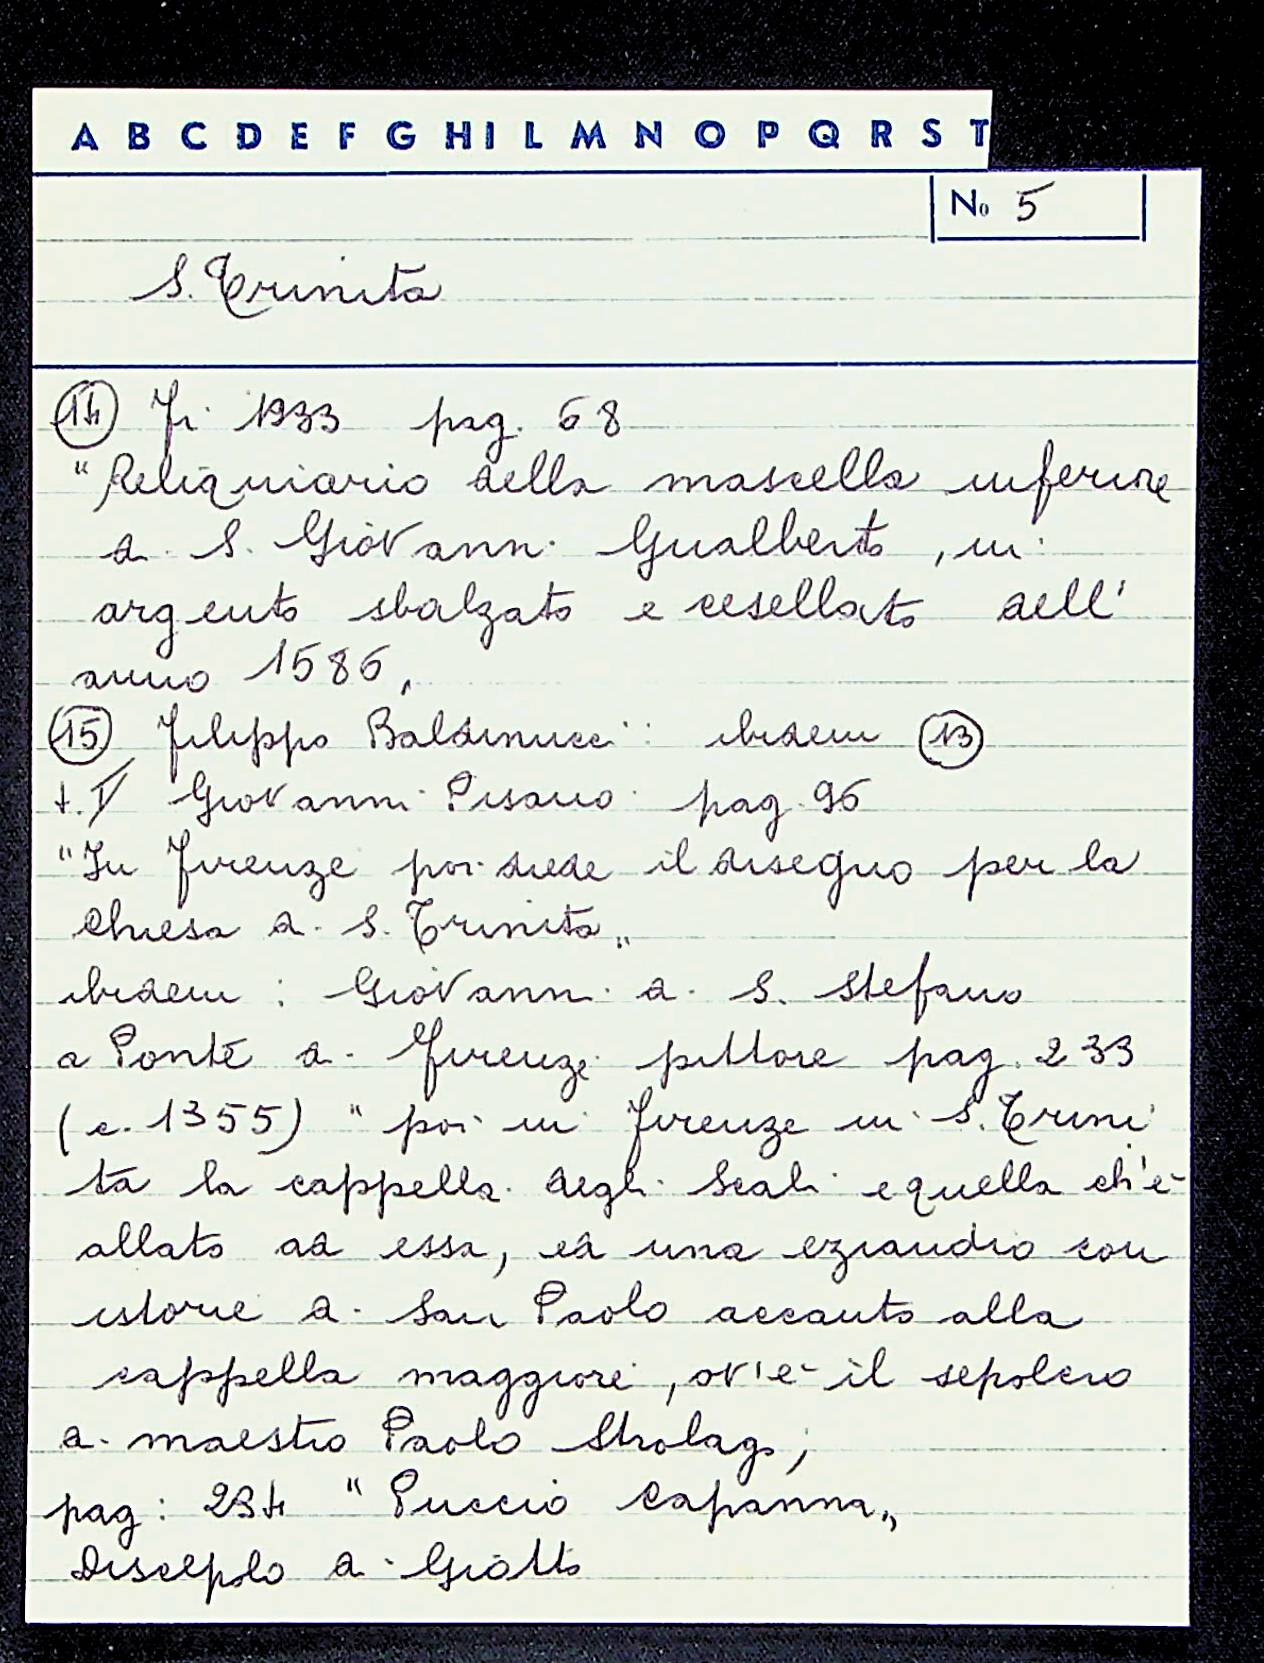 A B C D E F G H I L M N O P Q R S T
No 5
S. Trinita
14 Fi 1933 pag. 68
"Reliquiario della mascella inferiore
di S. Giovanni Gualberto, in
argento sbalzato e cesellato dell'
anno 1586"
15 Filippo Baldinucci: ibidem 13
t. V Giovanni Pisano pag. 96
"In Firenze poi diede il disegno per la
chiesa di S. Trinita"
ibidem: Giovanni di S. Stefano
a Ponte di Firenze pittore pag. 233
(c. 1355) "poi in Firenze in S. Trini
tà la cappella degli Scali e quella ch'è
allato ad essa, ed una eziandio con
istorie di San Paolo accanto alla
cappella maggiore, ov'è il sepolcro
di maestro Paolo Strolago;
pag: 234 "Puccio Capanna"
Discepolo di Giotto